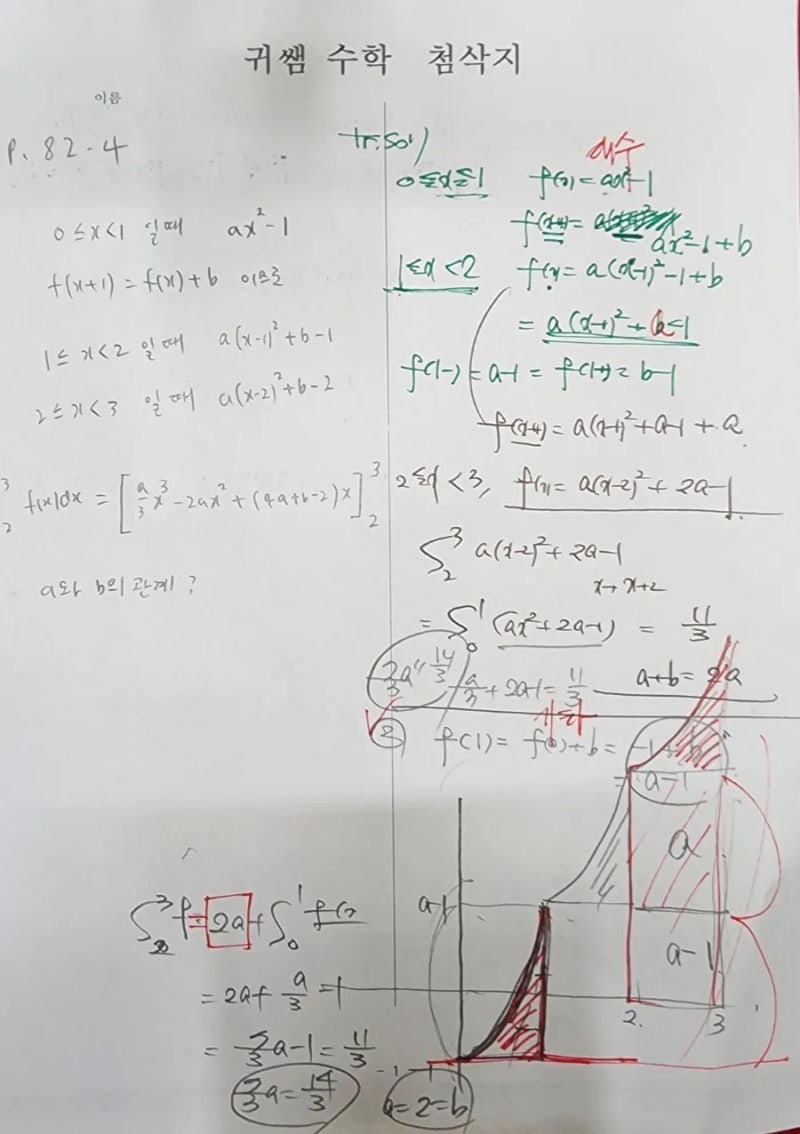 귀쌤 수학 첨삭지
이름
P. 82-4
0≤x<1 일때 ax²-1
f(x+1) = f(x)+b 이므로
1≤x<2 일때 a(x-1)²+b-1
2≤x<3 일때 a(x-2)²+b-2
3
2 f(x)dx = [a/3 x³-2ax²+(4a+b-2)x]₂³
a와 b의 관계?
tr.sol)
0≤x≤1 f(x) = ax²-1
f(x+1) = ax²-1+b
1≤x<2 f(x) = a(x-1)²-1+b
= a(x-1)²+b-1
f(1-) = a-1 = f(1+) = b-1
f(x+1) = a(x-1)²+a-1+a
2≤x<3, f(x) = a(x-2)²+2a-1
∫₂³ a(x-2)²+2a-1
x→x+2
= ∫₀¹ (ax²+2a-1) = 11/3
7/3 a = 14/3
a/3+2a-1 = 11/3
a+b = 2a
② f(1) = f(0)+b = -1+b
= a-1
a
a-1
a-1
2. 3
-1
∫₂³ f = 2a+∫₀¹ f(x)
= 2a+a/3-1
= 7/3 a-1 = 11/3
7/3 a = 14/3
a=2=b